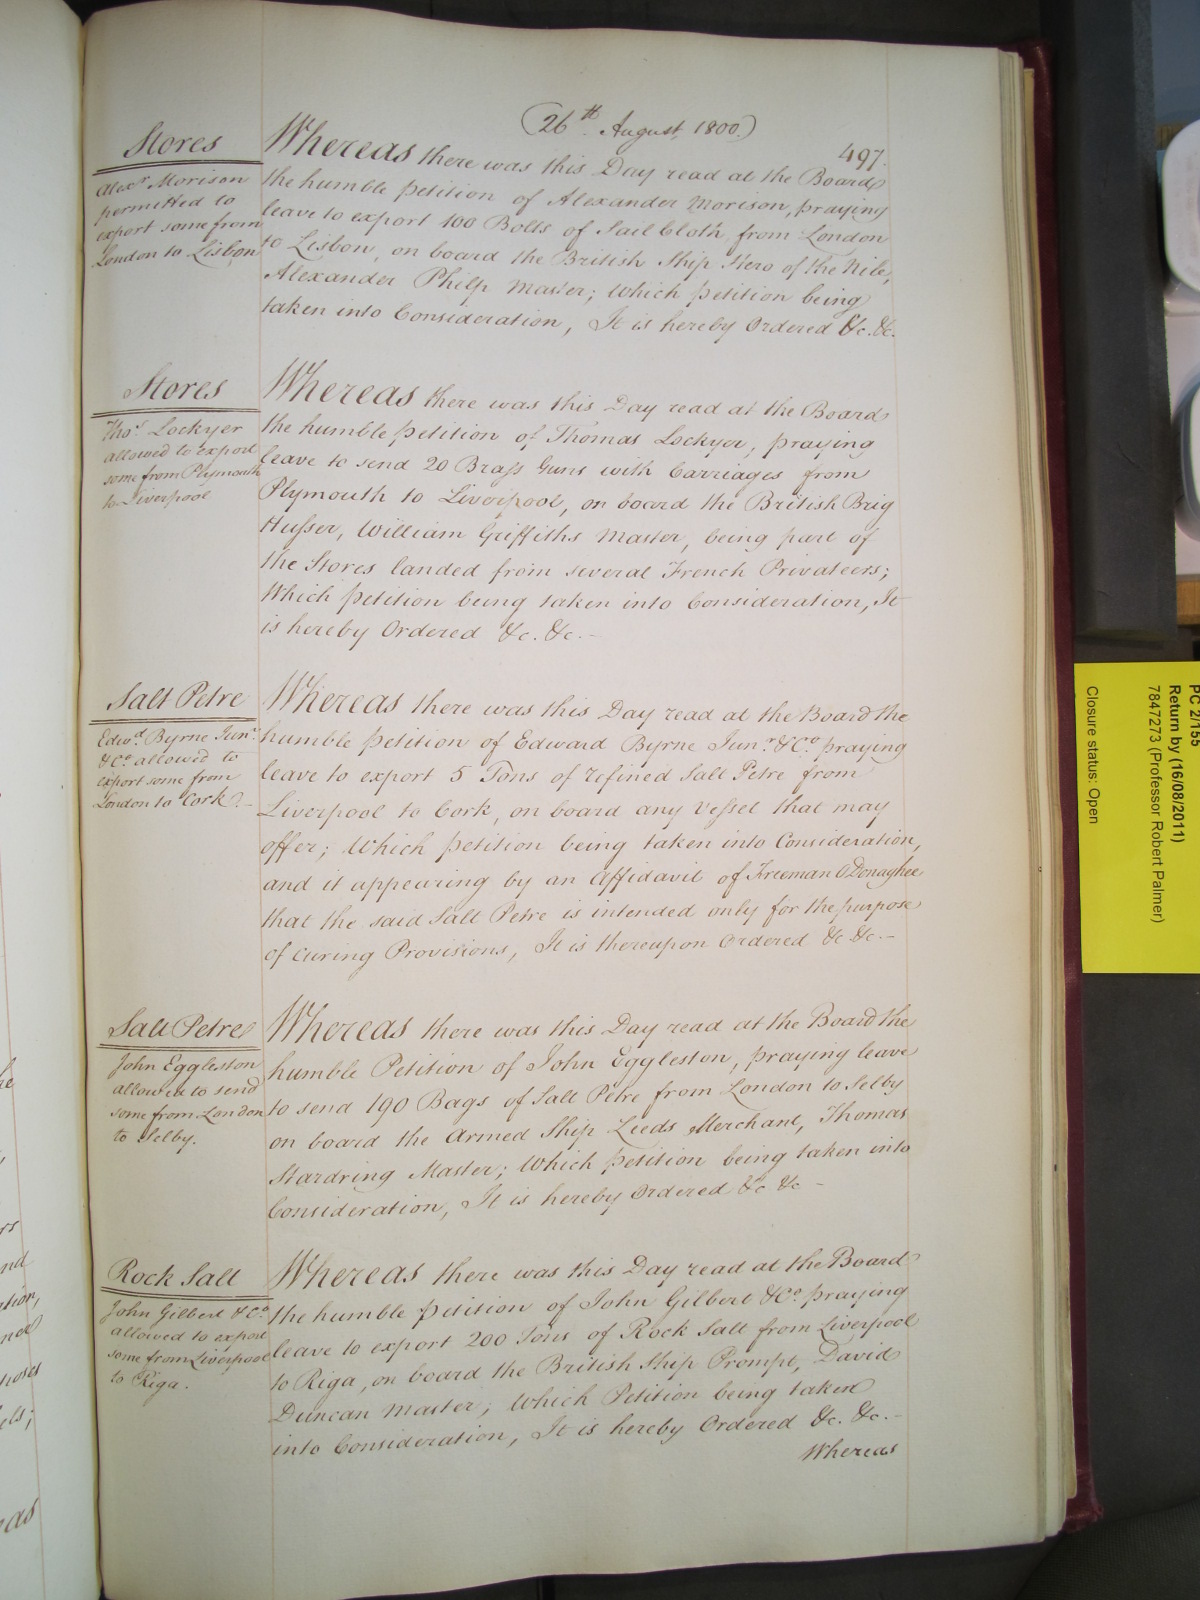 (26th. August, 1800.)
497.
Stores
Alexr. Morison
permitted to
export some from
London to Lisbon
Whereas there was this Day read at the Board
the humble Petition of Alexander Morison, praying
leave to export 100 Bolts of Sail Cloth from London
to Lisbon, on board the British Ship Hero of the Nile,
Alexander Philp Master; Which Petition being
taken into Consideration, It is hereby Ordered &c. &c.
Stores
Thos. Lockyer
allowed to export
some from Plymouth
to Liverpool
Whereas there was this Day read at the Board
the humble Petition of Thomas Lockyer, praying
leave to send 20 Brass Guns with Carriages from
Plymouth to Liverpool, on board the British Brig
Husser, William Griffiths Master, being part of
the Stores landed from several French Privateers;
Which Petition being taken into Consideration, It
is hereby Ordered &c. &c. -
Salt Petre
Edwd. Byrne Junr.
& Co. allowed to
export some from
London to Cork. -
Whereas there was this Day read at the Board the
humble Petition of Edward Byrne Junr. & Co. praying
leave to export 5 Tons of refined Salt Petre from
Liverpool to Cork, on board any Vessel that may
offer; Which Petition being taken into Consideration,
and it appearing by an Affidavit of Freeman O'Donaghue
that the said Salt Petre is intended only for the purpose
of curing Provisions, It is thereupon Ordered &c &c. -
Salt Petre
John Eggleston
allowed to send
some from London
to Selby.
Whereas there was this Day read at the Board the
humble Petition of John Eggleston, praying leave
to send 190 Bags of Salt Petre from London to Selby
on board the Armed Ship Leeds Merchant, Thomas
Stardring Master; Which Petition being taken into
Consideration, It is hereby Ordered &c &c -
Rock Salt
John Gilbert & Co.
allowed to export
some from Liverpool
to Riga.
Whereas there was this Day read at the Board
the humble Petition of John Gilbert & Co. praying
leave to export 200 Tons of Rock Salt from Liverpool
to Riga, on board the British Ship Prompt, David
Duncan Master; Which Petition being taken
into Consideration, It is hereby Ordered &c. &c. -
Whereas
PC 2/155
Return by (16/08/2011)
7847273 (Professor Robert Palmer)
Closure status: Open